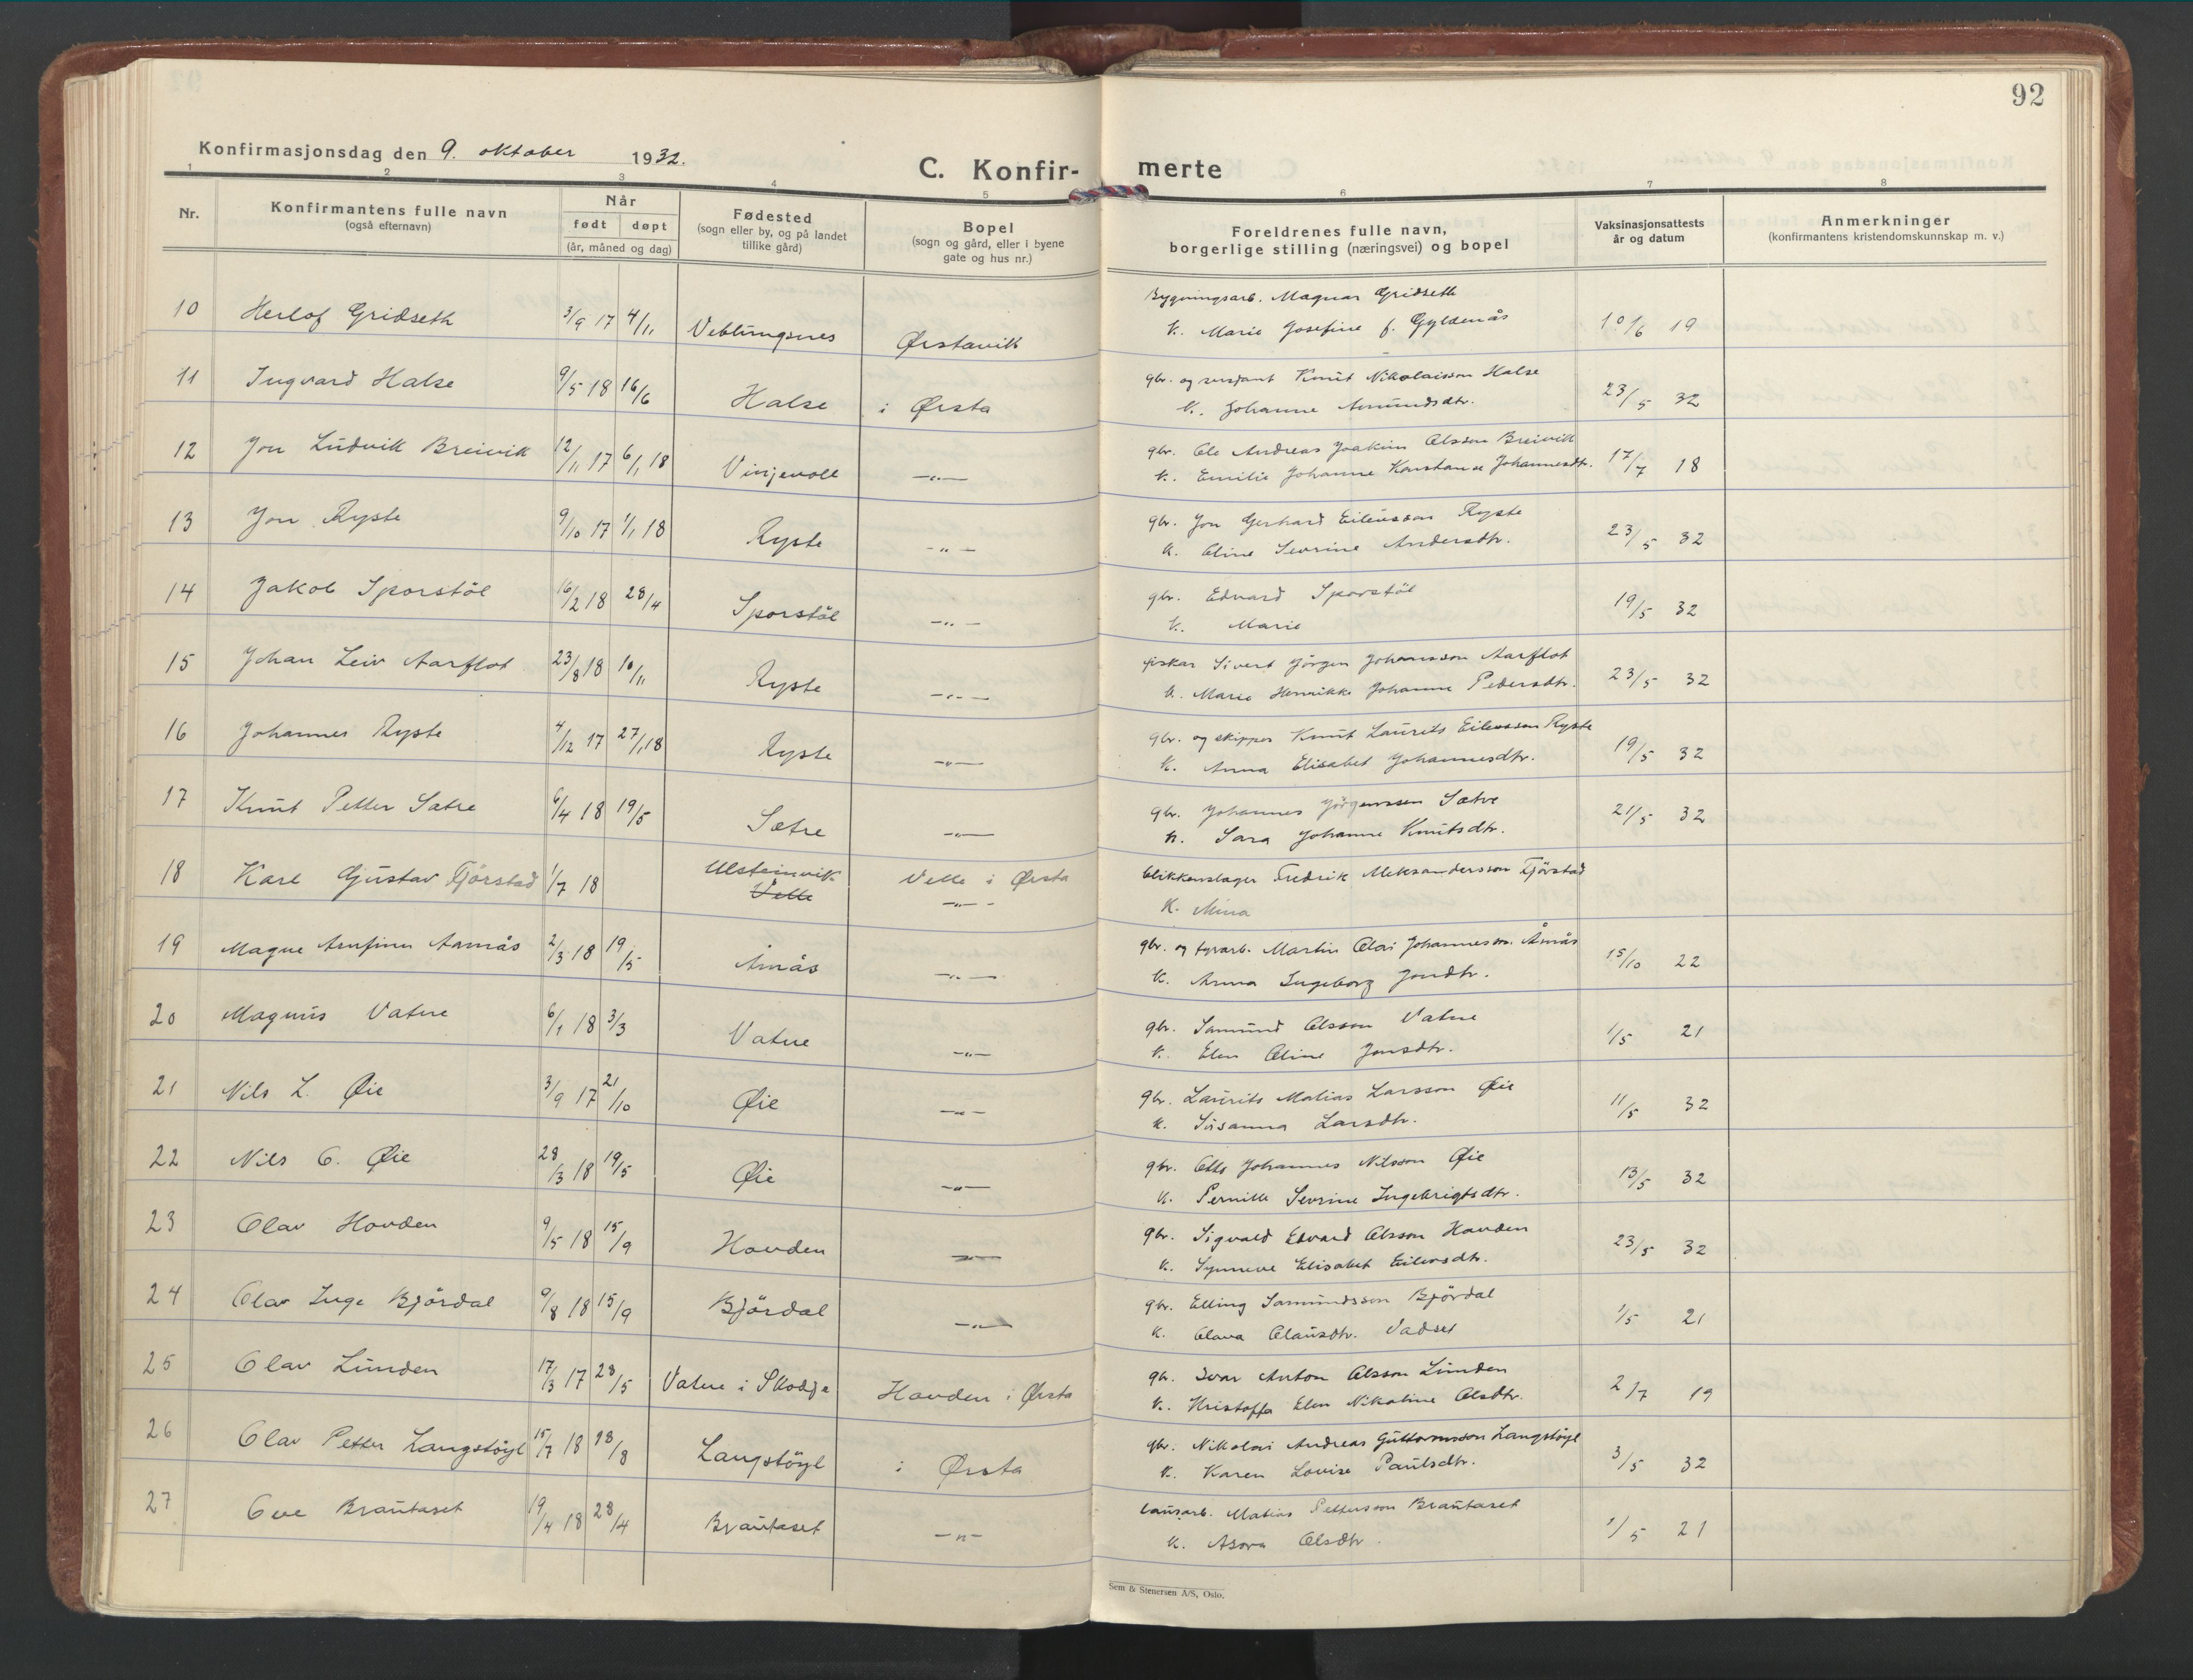 92
Konfirmasjonsdag den 9. oktober 1932.
C. Konfir- merte
1 2 3 4 5 6 7 8
Nr.
Konfirmantens fulle navn
(også efternavn)
Når
født døpt
(år, måned og dag)
Fødested
(sogn eller by, og på landet
tillike gård)
Bopel
(sogn og gård, eller i byene
gate og hus nr.)
Foreldrenes fulle navn,
borgerlige stilling (næringsvei) og bopel
Vaksinasjonsattests
år og datum
Anmerkninger
(konfirmantens kristendomskunnskap m. v.)
10 Herlof Gridseth 3/9 17 4/11 Veblungsnes Ørstavik Bygningsarb. Magnar Gridseth
K. Marie Josefine f. Gyldenås 10/6 19
11 Ingvard Halse 9/5 18 16/6 Halse i Ørsta gbr. og Knut Nikolaisson Halse
K. Johanne Amundsdtr. 23/5 32
12 Jon Ludvik Breivik 12/11 17 6/1 18 Vinjevoll —"— gbr. Ole Andreas Joakim Olsson Breivik
K. Emilie Johanne Konstanse Johannesdtr. 17/7 18
13 Jon Ryste 9/10 17 1/1 18 Ryste —"— gbr. Jon Gerhard Eileusson Ryste
K. Oline Sevrine Andersdtr. 23/5 32
14 Jakob Sporstöl 16/2 18 28/4 Sporstöl —"— gbr. Edvard Sporstöl
K. Marie 19/5 32
15 Johan Leiv Aarflot 23/8 18 10/11 Ryste —"— fiskar Sivert Jörgen Johansson Aarflot
K. Marie Henrikke Johanne Pedersdtr. 23/5 32
16 Johannes Ryste 4/12 17 27/1 18 Ryste —"— gbr. og skipper Knut Laurits Eileusson Ryste
K. Anna Elisabet Johannesdtr. 19/5 32
17 Knut Petter Sætre 6/4 18 19/5 Sætre —"— gbr. Johannes Jörgenssen Sætre
K. Sara Johanne Knutsdtr. 21/5 32
18 Kare Gustav Fjörstad 1/7 18 Ulsteinvik Velle Velle i Ørsta —"— blikkenslager Fredrik Aleksandersson Fjörstad
K. Mina
19 Magne Arnfinn Aamås 2/3 18 19/5 Åmås —"— gbr. og fyrarb. Martin Olai Johannesson Åmås
K. Anna Ingeborg Jondtr. 15/10 22
20 Magnus Vatne 6/1 18 3/3 Vatne —"— gbr. Samund Olsson Vatne
K. Elen Oline Jonsdtr. 1/5 21
21 Nils L. Øie 3/9 17 21/10 Øie —"— gbr. Laurits Matias Larsson Øie
K. Susanna Larsdtr. 11/5 32
22 Nils O. Øie 28/3 18 19/5 Øie —"— gbr. Otto Johannes Nilsson Øie
K. Pernille Sevrine Ingebrigtsdtr. 13/5 32
23 Olav Hovden 9/5 18 15/9 Hovden —"— gbr. Sigvald Edvard Olsson Hovden
K. Synneve Elisabet Eileusdtr. 23/5 32
24 Olav Inge Björdal 9/8 18 15/9 Björdal —"— gbr. Elling Samundsson Björdal
K. Olava Olausdtr. Vadset 1/5 21
25 Olav Lunden 17/3 17 28/5 Vatne i Skodje Hovden i Ørsta gbr. Ivar Anton Olsson Lunden
K. Kristoffa Elen Nikoline Olsdtr. 2/7 19
26 Olav Petter Langstöyl 15/7 18 18/8 Langstöyl i Ørsta gbr. Nikolai Andreas Guttormsson Langstöyl
K. Karen Lovise Paulsdtr. 3/5 32
27 Ove Brautaset 19/4 18 28/4 Brautaset —"— lausarb. Matias Pettersson Brautaset
K. Asora Olsdtr. 1/5 21
Sem & Stenersen A/S, Oslo.